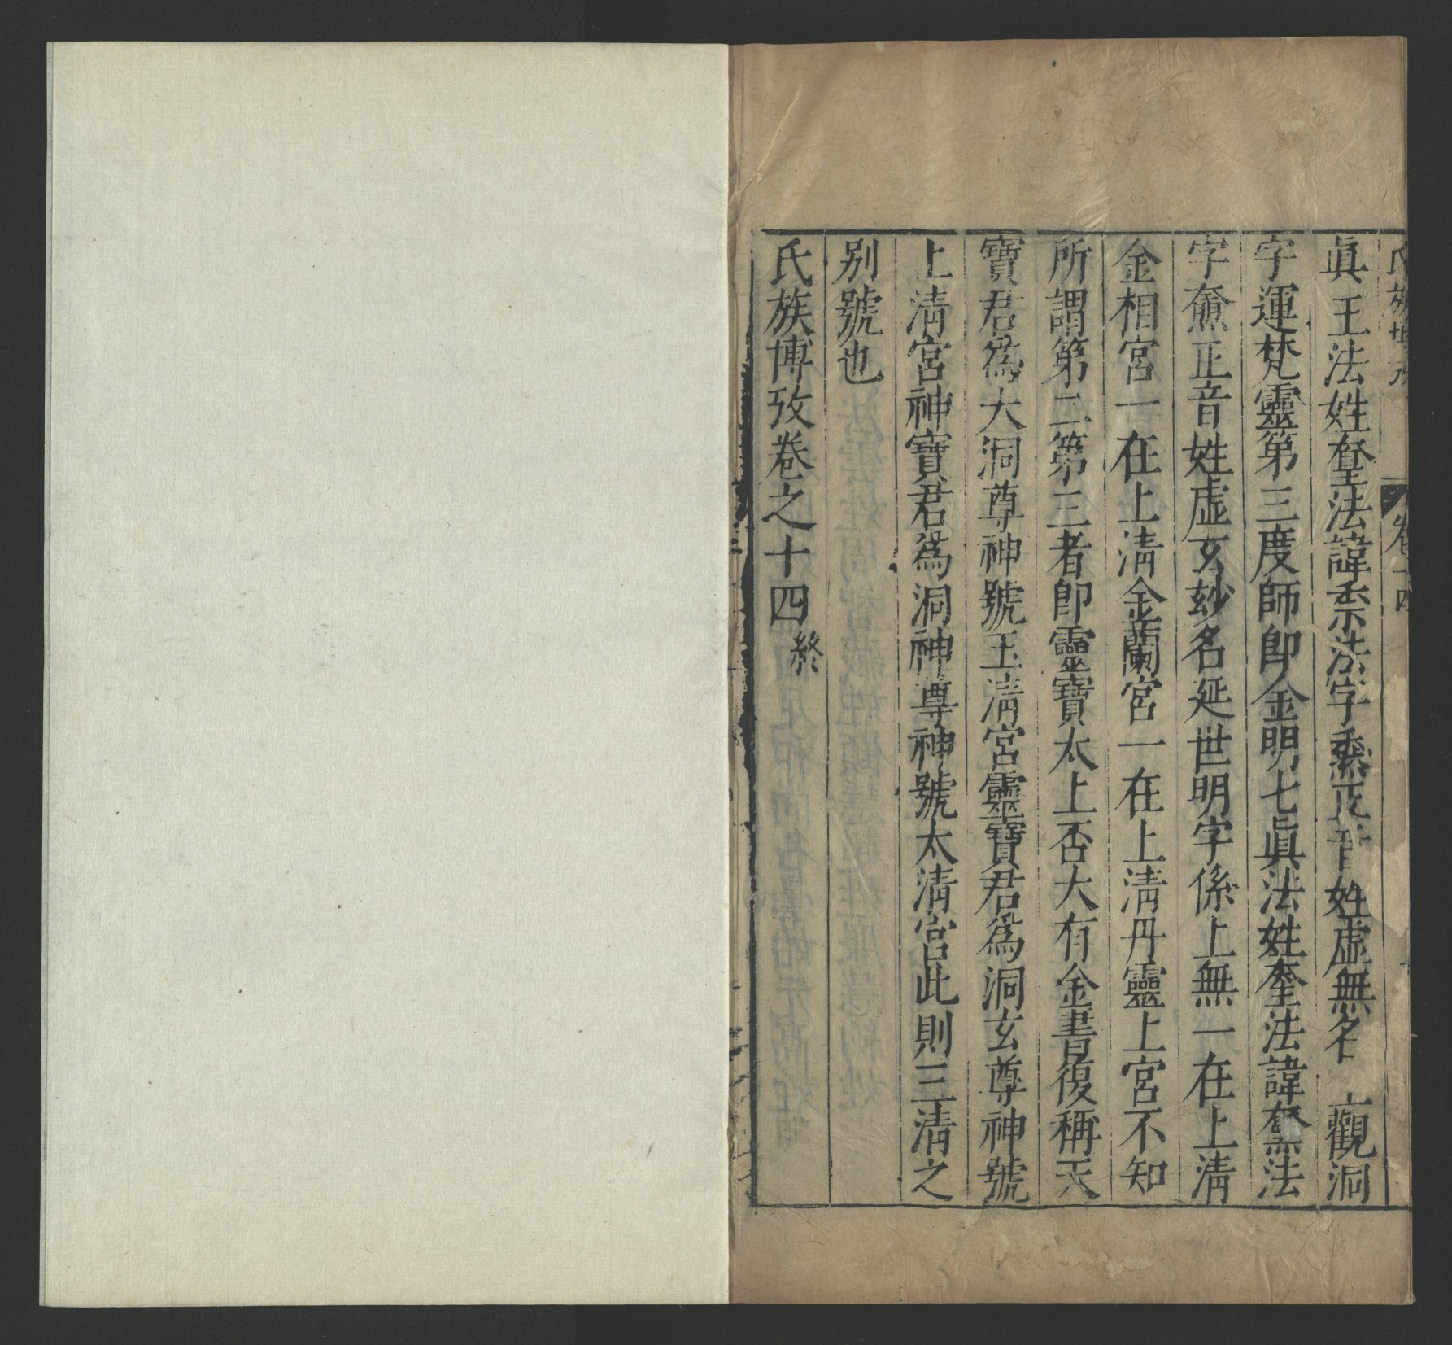 氏族博攷 卷十四
眞王法姓𡘾法諱𡗶法字𡙇正音姓虛無名 觀洞
字運梵靈第三度師卽金明七眞法姓𡘾法諱𡙇法
字𡙇正音姓虛玄玅名延世明字係上無一在上淸
金相宮一在上淸金蘭宮一在上淸丹靈上宮不知
所謂第二第三者卽靈寶太上否大有金書復稱天
寶君爲大洞尊神號玉淸宮靈寶君爲洞玄尊神號
上淸宮神寶君爲洞神尊神號太淸宮此則三淸之
别號也
氏族博攷卷之十四終